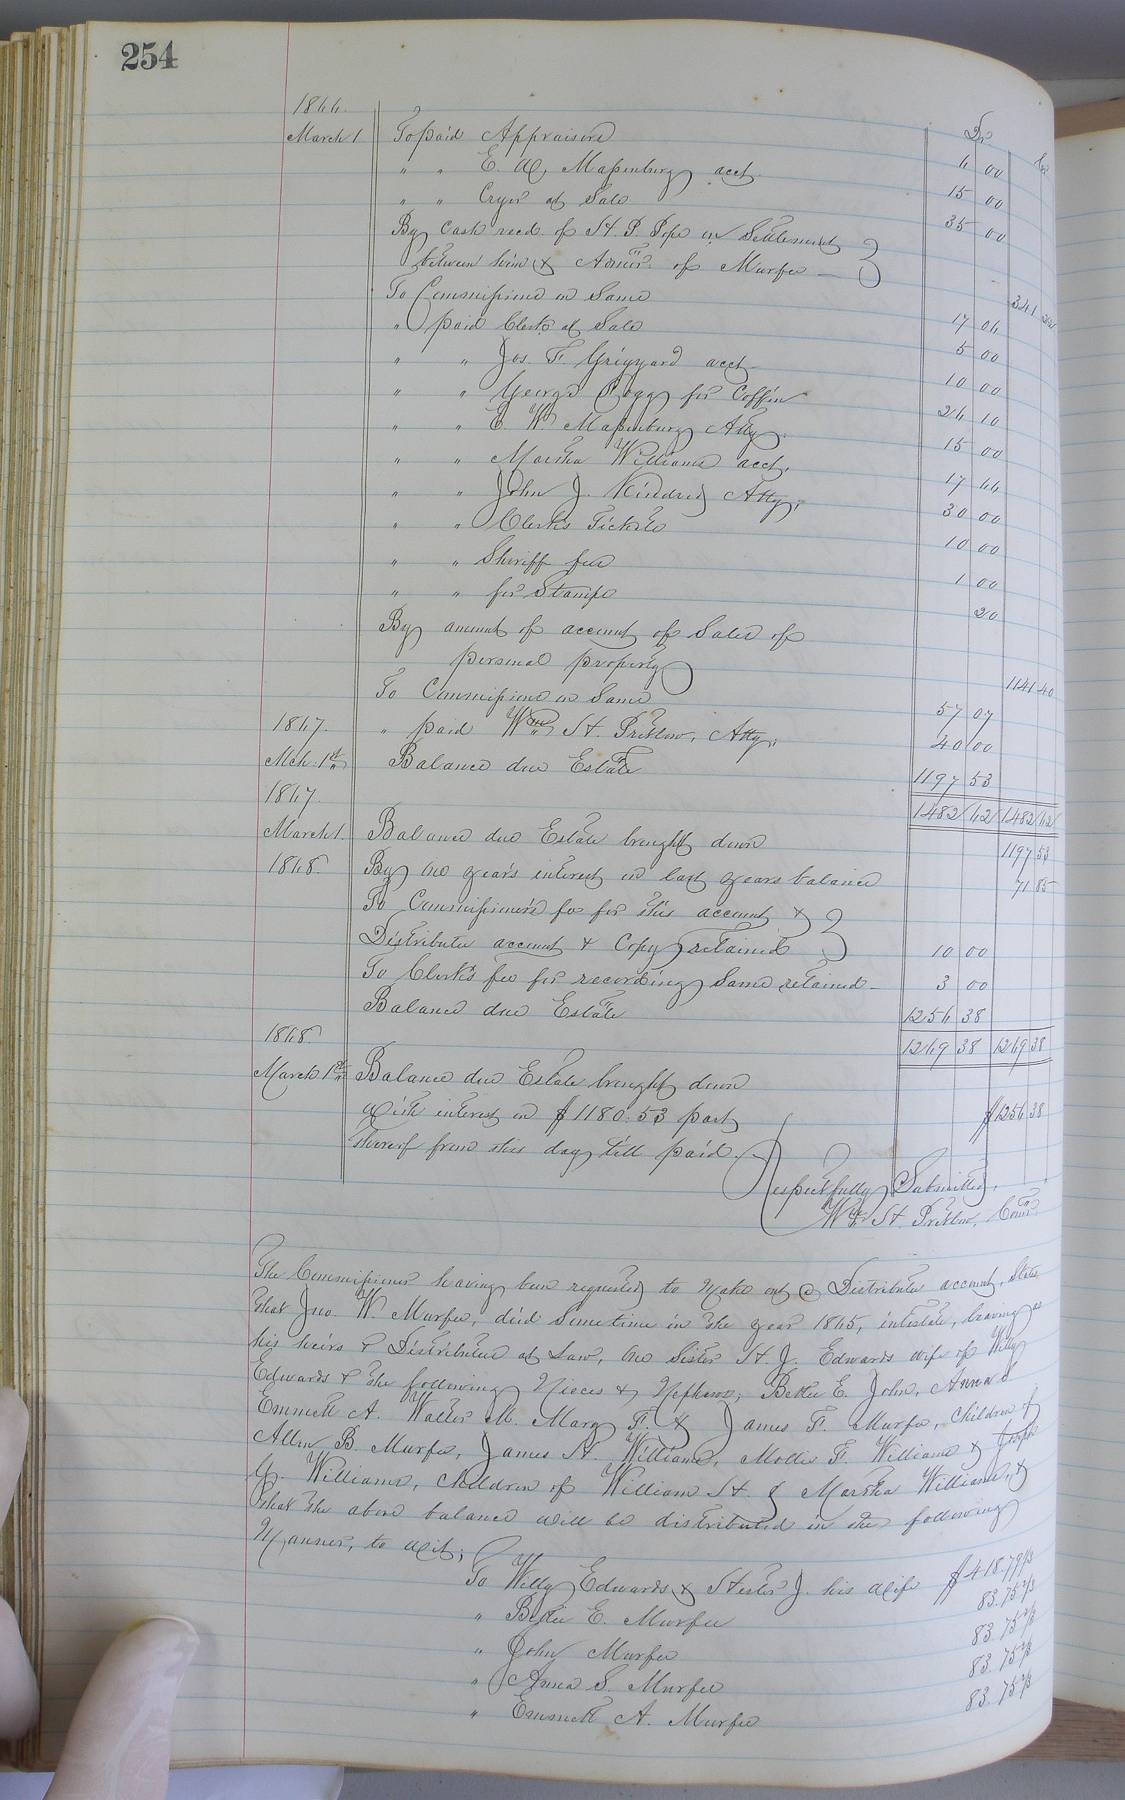 254
1866. Dr Cr
March 1 To paid Appraisers 6 00
" " E. W. Massenburg acct. 15 00
" " Cryer at Sale 35 00
By cash recd. of H. P. Pope in Settlement
between him & Admr. of Murfee — 341 22
To Commissions on Same 17 06
" paid Clerk at Sale 5 00
" " Jos. F. Grizzard acct — 10 00
" " George Bogg for Coffin 26 10
" " E. W. Massenburg Atty. 15 00
" " Martha Williams acct. 17 66
" " John J. Kindred Atty; 30 00
" " Clerk's Tickets 10 00
" " Sheriff fees 1 00
" " for Stamps 20
By amount of account of Sales of
personal property 1141 40
To Commissions on Same 57 07
1867. " paid Wm. H. Pretlow, Atty; 40 00
Mch. 1st Balance due Estate 1197 53
1867 1482 62 1482 62
March 1. Balance due Estate brought down 1197 53
1868. By one year's interest on last years balance 71 85
To Commissioner's fee for this account &
Distributee account & Copy retained 10 00
To Clerk's fee for recording Same retained — 3 00
Balance due Estate 1256 38
1868 1269 38 1269 38
March 1st Balance due Estate brought down
with interest on $1180.53 part $1256 38
thereof from this day till paid. —
Respectfully Submitted,
Wm. H. Pretlow, Comr.
The Commissioner having been requested to make out a Distributee account, States
that Jno. W. Murfee, died Sometime in the year 1865, intestate, leaving as
his heirs & Distributees at Law, One Sister H. J. Edwards wife of Willy
Edwards & the following Nieces & Nephews; Bettie E. John, Anna S
Emmett A. Walter M. Mary F. & James F. Murfee, Children of
Allen B. Murfee, James N. Williams, Mollie F. Williams & Joseph
G. Williams, Children of William H. & Martha Williams, &
that the above balance will be distributed in the following
Manner, to wit;
To Willy Edwards & Hester J. his wife $418.79 1/3
" Bettie E. Murfee 83.75 2/3
" John Murfee 83.75 2/3
" Anna S. Murfee 83.75 2/3
" Emmett A. Murfee 83.75 2/3